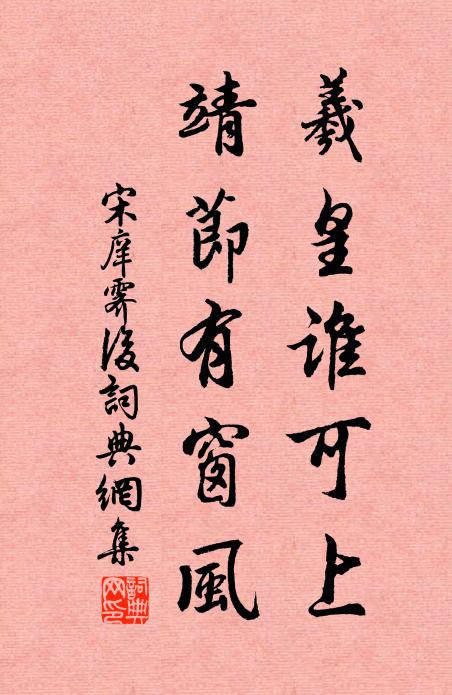 羲皇誰可上
靖節有窗風
宋庠霽後詞典網集
詞典網印